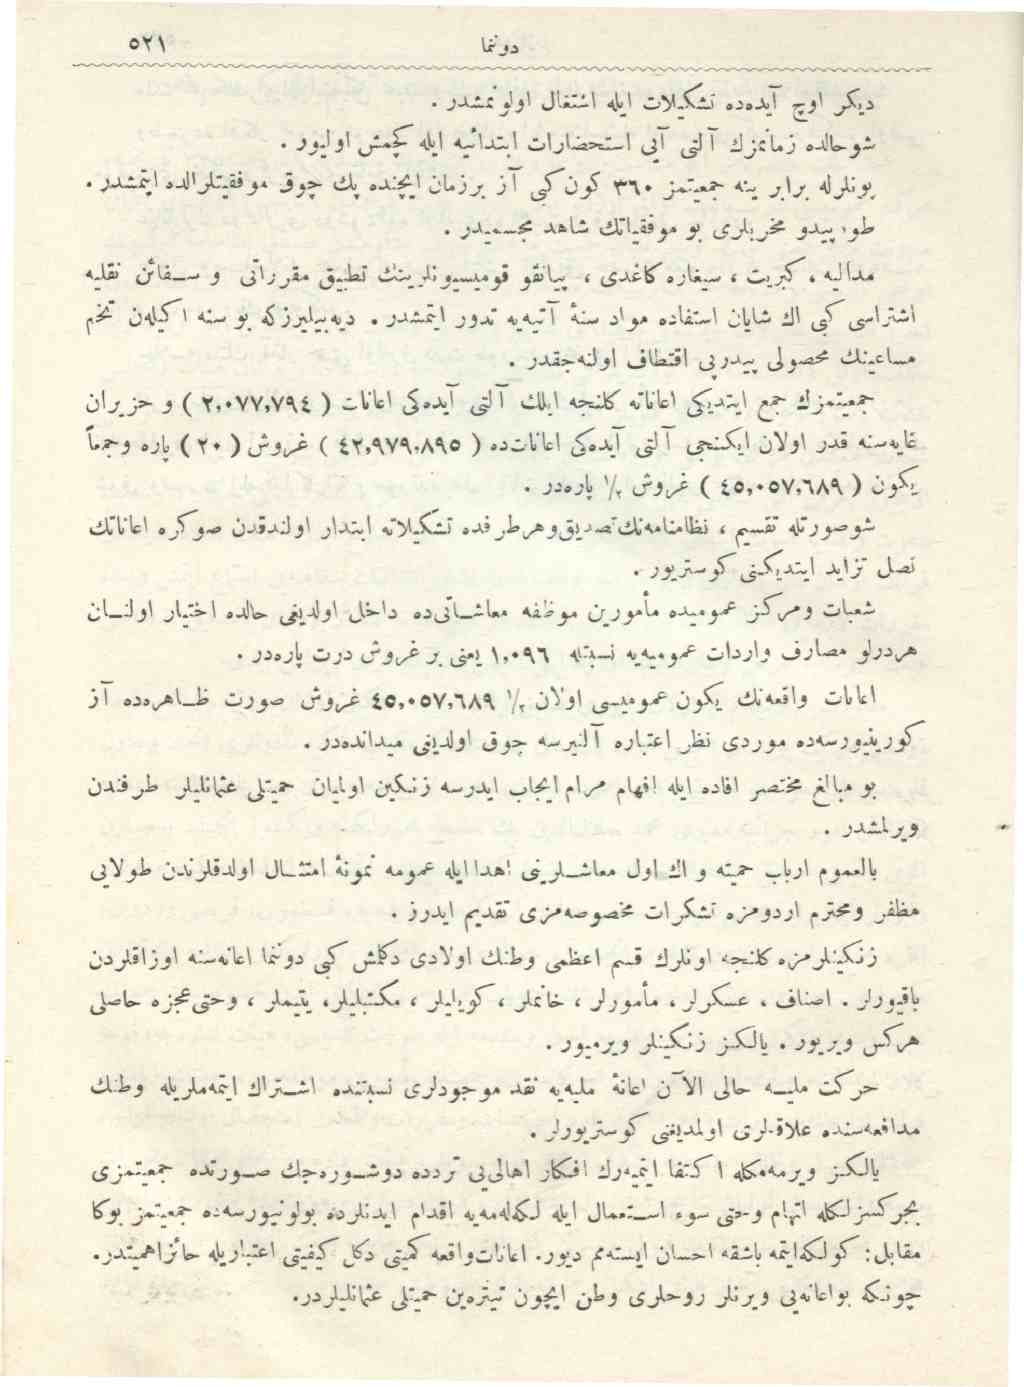 دوننما ٥٢١
ديكر اوچ آيده‌ده تشكيلات ايله اشتغال اولونمشدر .
شوحالده زمانمزك آلتى آيى استحضارات ابتدائيه ايله كچمش اوليور .
بونلرله برابر ينه جمعيتمز ٣٦٠ كون كبى آز برزمان ايچنده پك چوق موفقيتلرالده ايتمشدر .
طورپيدو مخربلرى بو موفقياتك شاهد مجسميدر .
مداليه ، كبريت ، سيغاره كاغدى ، پيانقو قوميسيونلرينك تطبيق مقرراتى و سفائن نقليه
اشتراسى كبى اك شايان استفاده مواد سنهٔ آتيه‌يه تدور ايتمشدر . ديه‌بيليرزكه بو سنه اكيلەن تخم
مساعينك محصولى پيدرپى اقتطاف اولنه‌جقدر .
جمعيتمزك جمع ايتديكى اعاناته كلنجه ايلك آلتى آيده‌كى اعانات ( ٢,٠٧٧,٧٩٤ ) و حزيران
غايه‌سنه قدر اولان ايكنجى آلتى آيده‌كى اعانات‌ده ( ٤٢,٩٧٩,٨٩٥ ) غروش ( ٢٠ ) پاره وجمعاً
يكون ( ٤٥,٠٥٧,٦٨٩ ) غروش ١/٢ پاره‌در .
شوصورتله تقسيم ، نظامنامه‌نك تصديق‌وهرطرفده تشكيلاته ابتدار اولندقدن صوكره اعاناتك
نصل تزايد ايتديكنى كوستريور .
شعبات ومركز عموميده مأمورين موظفه معاشاتى‌ده داخل اولديغى حالده اختيار اولنان
هردرلو مصارف واردات عموميه‌يه نسبتله ١,٠٩٦ يعنى بر غروش درت پاره‌در .
اعانات واقعه‌نك يكون عموميسى اولان ١/٢ ٤٥,٠٥٧,٦٨٩ غروش صورت ظاهره‌ده آز
كورينيورسه‌ده موردى نظر اعتباره آلنيرسه چوق اولدينى ميدانده‌در .
بو مبالغ مختصر افاده ايله افهام مرام ايجاب ايدرسه زنكين اولميان حميتلى عثمانليلر طرفندن
ويرلمشدر .
بالعموم ارباب حميته و اك اول معاشلرينى اهدا ايله عمومه نمونهٔ امتثال اولدقلرندن طولايى
مظفر ومحترم اردومزه تشكرات مخصوصه‌مزى تقديم ايدرز .
زنكينلرمزه كلنجه اونلرك قسم اعظمى وطنك اولادى دكلمش كبى دوننما اعانه‌سنه اوزاقلردن
باقيورلر . اصناف ، عسكرلر ، مأمورلر ، خانملر ، كويليلر ، مكتبليلر، يتيملر ، وحتى‌عجزه حاصلى
هركس ويريور . يالكز زنكينلر ويرميور .
حركت مليه حالى الآن اعانهٔ مليه‌يه نقد موجودلرى نسبتنده اشتراك ايتمه‌ملريله وطنك
مدافعه‌سنده علاقه‌لرى اولمديغنى كوستريورلر .
يالكز ويرمه‌مكله اكتفا ايتميه‌رك افكار اهالى‌يى تردده دوشوره‌جك صورتده جمعيتمزى
بجركسزلكله اتهام وحتى سوء استعمال ايله لكه‌له‌مه‌يه اقدام ايدنلرده بولونيورسه‌ده جمعيتمز بوكا
مقابل: كولكه‌ايتمه باشقه احسان ايسته‌مم ديور. اعانات‌واقعه كميتى دكل كيفيتى اعتباريله حائزاهميتدر.
چونكه بواعانه‌يى ويرنلر روحلرى وطن ايچون تيتره‌ين حميتلى عثمانليلردر.